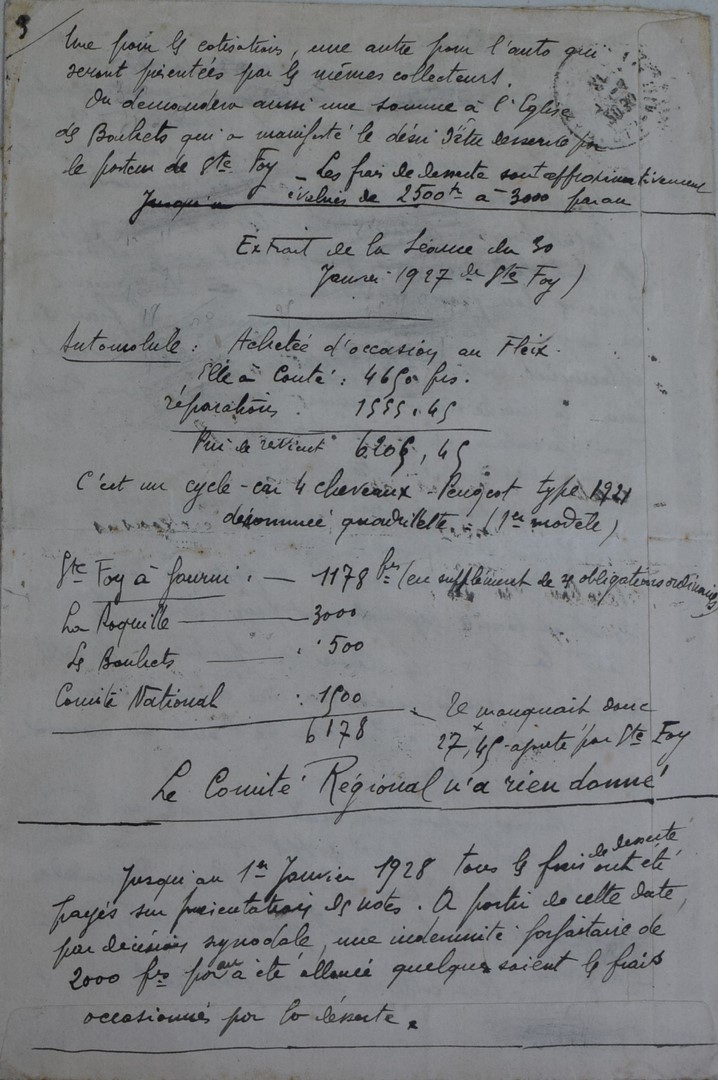 3
Une pour les cotisations, une autre pour l'auto qui
seront présentées par les mêmes collecteurs.
On demandera aussi une somme à l'Eglise
des Bouhets qui a manifesté le désir d'être desservie par
le pasteur de Ste Foy _ Les frais de desserte sont approximativement
Jusqu'a évalués de 2500 frs à 3000 par an
Extrait de la Séance du 30
Janvier 1927 de Ste Foy)
Automobile : Achetée d'occasion au Fleix.
Elle a Couté : 4650 frs.
réparations 1555.45
Prix de revient 6205,45
C'est un cycle-car 4 chevaux - Peugeot type 1921
dénommée quadrilette. (1er modèle)
Ste Foy a fourni : — 1178 frs (en supplément de ses obligations ordinaires)
La Roquille — 3000
Les Bouhets — 500
Comité National : 1500
6178
Il manquait donc
27,45 - ajouté par Ste Foy
Le Comité Régional n'a rien donné
Jusqu'au 1er Janvier 1928 tous les frais de desserte ont été
payés sur présentation des notes. A partir de cette date,
par décision synodale, une indemnité forfaitaire de
2000 frs par an a été allouée quelques soient les frais
occasionnés par la desserte.